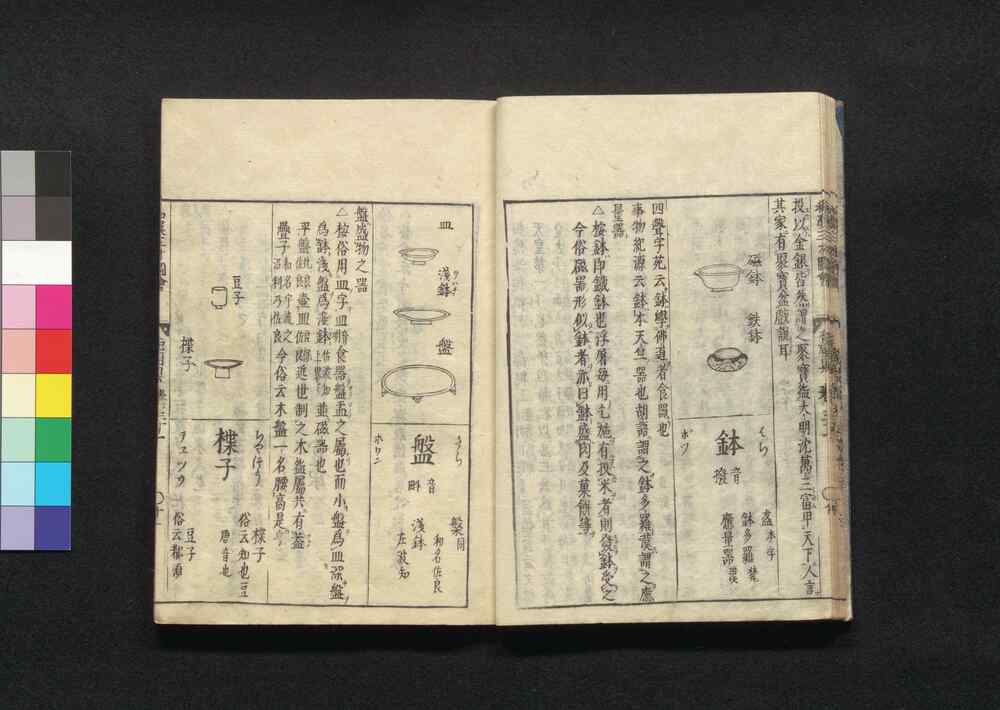 投以金銀皆然謂之聚寶盆大明沈萬三富甲天下人言
其家有聚寶盆戲說耳
磁鉢
鉄鉢
鉢
はち
音
撥
ホツ
盋 本字
鉢多羅 梵
應量器 漢
四聲字苑云鉢學佛道者食器也
事物紀源云鉢本天竺器也胡語謂之鉢多羅漢謂之應
量器
△按鉢即鐵鉢也浮屠毎用乞施有投米者則以鉢受之
今俗磁器形似鉢者亦曰鉢盛肉及菓餅等
皿
浅鉢
盤
盤
さら
音
ホワン
槃 同
和名佐良
淺鉢
左波知
盤盛物之器
△按俗用皿字皿將食器盤盂之屬也而小盤爲皿深盤
爲鉢淺盤爲淺鉢並磁器也
平盤壺皿近世制之木盤屬共有蓋
疊子今俗云木盤一名腰高是
豆子
楪子
楪子
ちやつう
楪子
俗云知也豆
唐音也
豆子